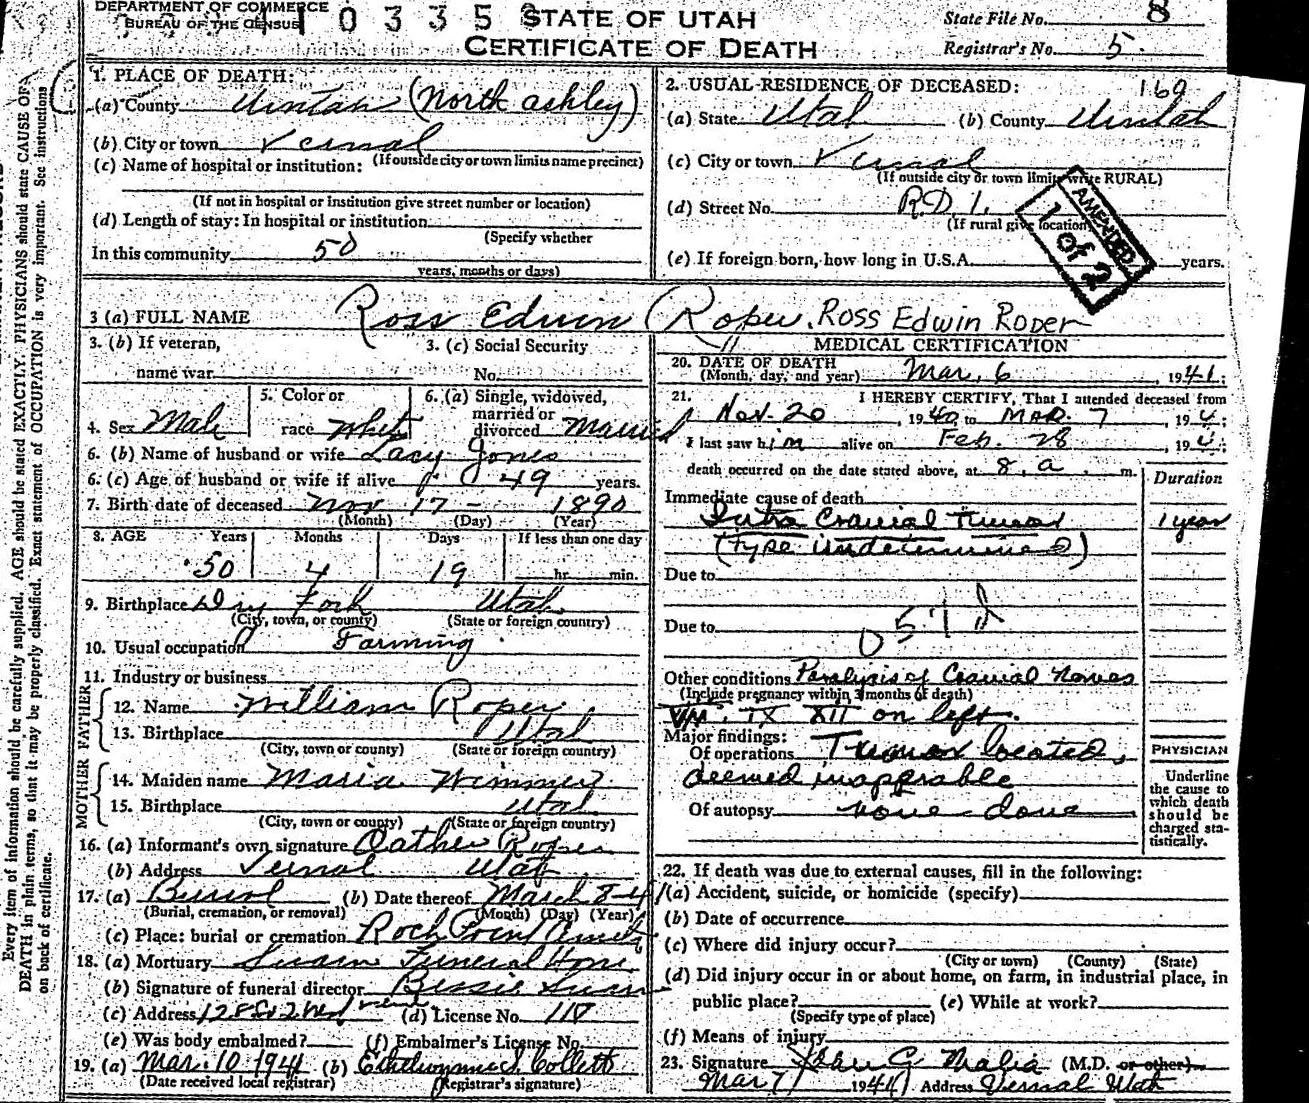 DEPARTMENT OF COMMERCE
BUREAU OF THE CENSUS
1 0 3 3 5
STATE OF UTAH
CERTIFICATE OF DEATH
State File No. 8
Registrar's No. 5.
Every item of information should be carefully supplied. AGE should be stated EXACTLY. PHYSICIANS should state CAUSE OF
DEATH in plain terms, so that it may be properly classified. Exact statement of OCCUPATION is very important. See instructions
on back of certificate.
1. PLACE OF DEATH:
(a) County Uintah (North Ashley)
(b) City or town Vernal
(If outside city or town limits name precinct)
(c) Name of hospital or institution:
(If not in hospital or institution give street number or location)
(d) Length of stay: In hospital or institution
(Specify whether
In this community 50
years, months or days)
2. USUAL RESIDENCE OF DECEASED: 169
(a) State Utah (b) County Uintah
(c) City or town Vernal
(If outside city or town limits write RURAL)
(d) Street No. R.D 1.
(If rural give location)
(e) If foreign born, how long in U.S.A. years.
AMENDED
1 of 2
3 (a) FULL NAME Ross Edwin Roper. Ross Edwin Roper
3. (b) If veteran,
name war
3. (c) Social Security
No.
4. Sex Male
5. Color or
race White
6. (a) Single, widowed,
married or
divorced Married
6. (b) Name of husband or wife Lacy Jones
6. (c) Age of husband or wife if alive 49 years.
7. Birth date of deceased Nov 17 - 1890
(Month) (Day) (Year)
8. AGE Years Months Days If less than one day
50 4 19 hr. min.
9. Birthplace Dry Fork Utah
(City, town, or county) (State or foreign country)
10. Usual occupation Farming
11. Industry or business
FATHER
12. Name William Roper
13. Birthplace Utah
(City, town or county) (State or foreign country)
MOTHER
14. Maiden name Maria Wimmer
15. Birthplace Utah
(City, town or county) (State or foreign country)
16. (a) Informant's own signature Roper
(b) Address Vernal Utah
17. (a) Burial (b) Date thereof March 8-4
(Burial, cremation, or removal) (Month) (Day) (Year)
(c) Place: burial or cremation Rock Point
18. (a) Mortuary Swain Funeral Home
(b) Signature of funeral director Bessie Swain
(c) Address (d) License No. 110
(e) Was body embalmed? (f) Embalmer's License No.
19. (a) Mar. 10 1941 (b) Ethelwynne S Collett
(Date received local registrar) (Registrar's signature)
MEDICAL CERTIFICATION
20. DATE OF DEATH
(Month, day, and year) Mar. 6, 1941.
21. I HEREBY CERTIFY, That I attended deceased from
Nov. 20, 1940, to Mar. 7, 194
I last saw him alive on Feb. 28 194
death occurred on the date stated above, at 8, a. m.
Duration
Immediate cause of death
Intra Cranial Tumor 1 year
(type undetermined)
Due to
Due to
Other conditions Paralysis of Cranial Nerves
(Include pregnancy within 3 months of death)
VII, IX XII on left.
Major findings:
Of operations Tumor located,
deemed inoperable
Of autopsy none done
PHYSICIAN
Underline
the cause to
which death
should be
charged sta-
tistically.
22. If death was due to external causes, fill in the following:
(a) Accident, suicide, or homicide (specify)
(b) Date of occurrence
(c) Where did injury occur?
(City or town) (County) (State)
(d) Did injury occur in or about home, on farm, in industrial place, in
public place? (e) While at work?
(Specify type of place)
(f) Means of injury
23. Signature John G Malia (M.D. or other)
Mar 7 1941 Address Vernal Utah